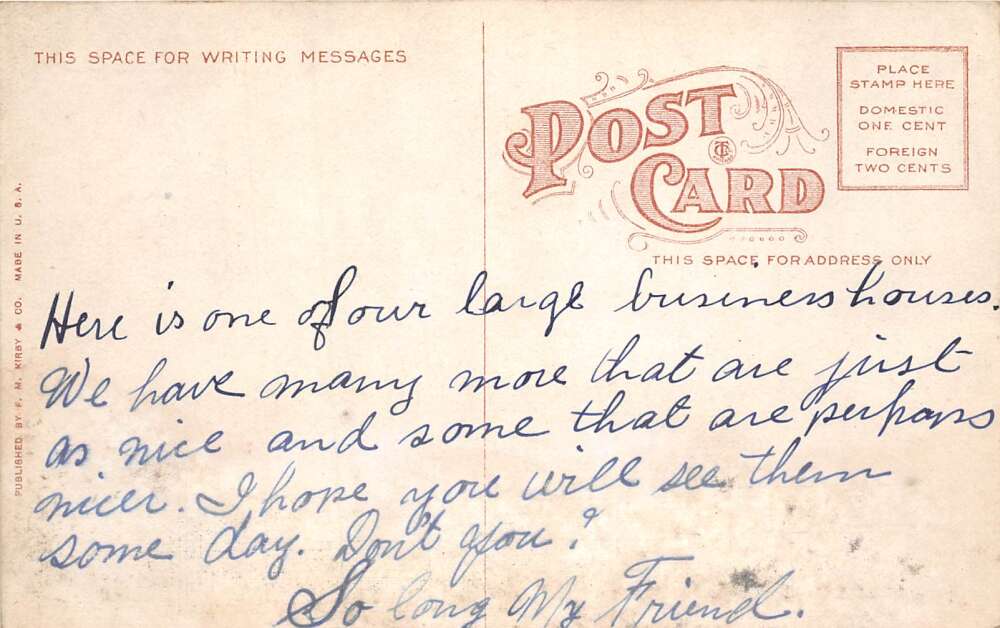 THIS SPACE FOR WRITING MESSAGES
POST
CARD
PLACE
STAMP HERE
DOMESTIC
ONE CENT
FOREIGN
TWO CENTS
THIS SPACE FOR ADDRESS ONLY
PUBLISHED BY F. M. KIRBY & CO. MADE IN U. S. A.
Here is one of our large business houses.
We have many more that are just
as nice and some that are perhaps
nicer. I hope you will see them
some day. Don't you?
So long My Friend.